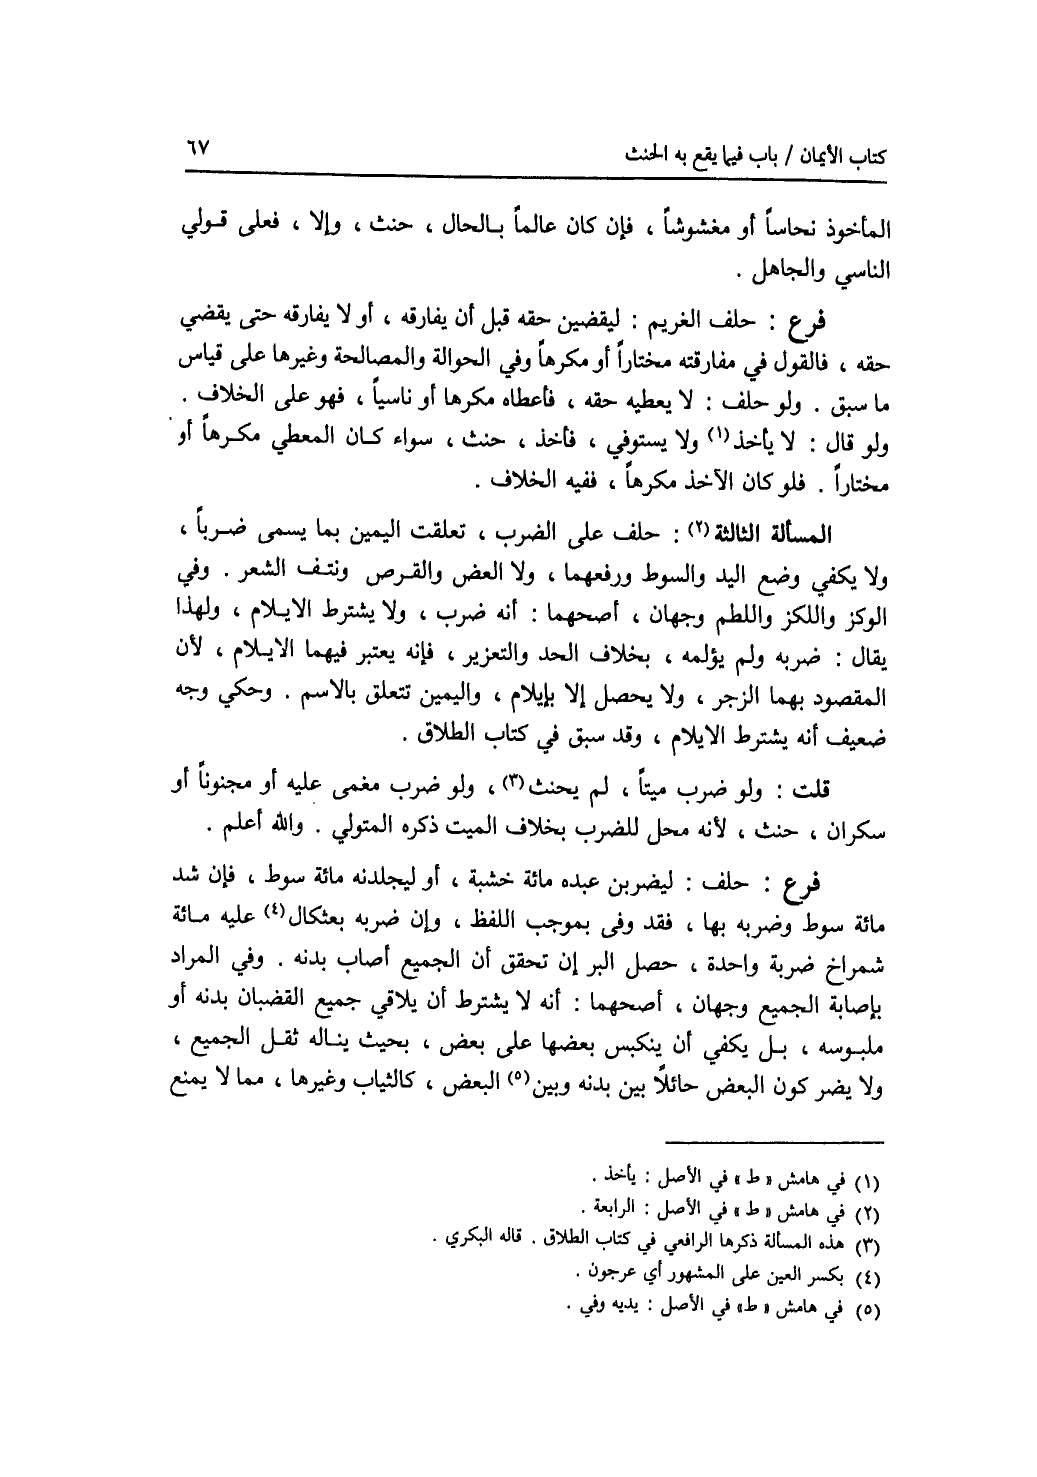 كتاب الأيمان / باب فيما يقع به الحنث
٦٧
المأخوذ نحاساً أو مغشوشاً ، فإن كان عالماً بـالحال ، حنث ، وإلا ، فعلى قـولي
الناسي والجاهل .
فرع : حلف الغريم : ليقضين حقه قبل أن يفارقه ، أو لا يفارقه حتى يقضي
حقه ، فالقول في مفارقته مختاراً أو مكرهاً وفي الحوالة والمصالحة وغيرها على قياس
ما سبق . ولو حلف : لا يعطيه حقه ، فأعطاه مكرها أو ناسياً ، فهو على الخلاف .
ولو قال : لا يأخذ(١) ولا يستوفي ، فأخذ ، حنث ، سواء كـان المعطي مكـرهاً أو
مختاراً . فلو كان الآخذ مكرهاً ، ففيه الخلاف .
المسألة الثالثة(٢) : حلف على الضرب ، تعلقت اليمين بما يسمى ضـرباً ،
ولا يكفي وضع اليد والسوط ورفعهما ، ولا العض والقـرص ونتـف الشعر . وفي
الوكز واللكز واللطم وجهان ، أصحهما : أنه ضرب ، ولا يشترط الايـلام ، ولهذا
يقال : ضربه ولم يؤلمه ، بخلاف الحد والتعزير ، فإنه يعتبر فيهما الايـلام ، لأن
المقصود بهما الزجر ، ولا يحصل إلا بإيلام ، واليمين تتعلق بالاسم . وحكي وجه
ضعيف أنه يشترط الايلام ، وقد سبق في كتاب الطلاق .
قلت : ولو ضرب ميتاً ، لم يحنث(٣) ، ولو ضرب مغمى عليه أو مجنوناً أو
سكران ، حنث ، لأنه محل للضرب بخلاف الميت ذكره المتولي . والله أعلم .
فرع : حلف : ليضربن عبده مائة خشبة ، أو ليجلدنه مائة سوط ، فإن شد
مائة سوط وضربه بها ، فقد وفى بموجب اللفظ ، وإن ضربه بعثكال(٤) عليه مـائة
شمراخ ضربة واحدة ، حصل البر إن تحقق أن الجميع أصاب بدنه . وفي المراد
بإصابة الجميع وجهان ، أصحهما : أنه لا يشترط أن يلاقي جميع القضبان بدنه أو
ملبـوسه ، بـل يكفي أن ينكبس بعضها على بعض ، بحيث ينـاله ثقـل الجميع ،
ولا يضر كون البعض حائلاً بين بدنه وبين(٥) البعض ، كالثياب وغيرها ، مما لا يمنع
(١) في هامش « ط » في الأصل : يأخذ .
(٢) في هامش « ط » في الأصل : الرابعة .
(٣) هذه المسألة ذكرها الرافعي في كتاب الطلاق . قاله البكري .
(٤) بكسر العين على المشهور أي عرجون .
(٥) في هامش « ط» في الأصل : يديه وفي .